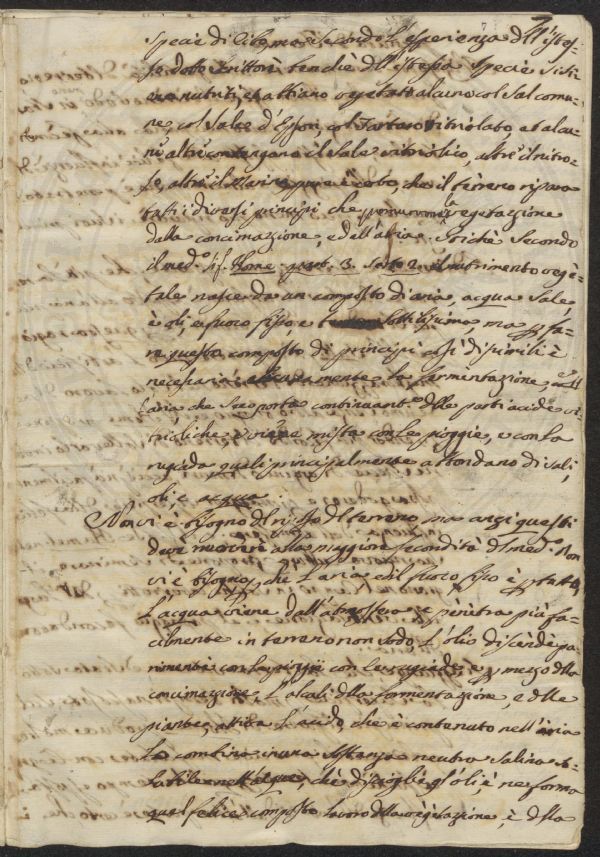 specie di cibo, ma secondo l'esperienza dell'istes-
so dotto scrittore benchè dell'istessa specie si sie
no nutriti, et abbiano vegetato alcuno col sal comu-
ne, col sale d'Epson, col Tartaro vitriolato, et alcu-
ni altri contengano il sale vitriolico, altri il nitro-
so, altri il Marino pure è certo, che il terreno ripara
tutti i diversi principi che la vegetazione
dalla concimazione, e dall'aria. Sicchè secondo
il med.o Sig. Home part. 3. sect. 2. il nutrimento vegè-
tale nasce da un composto di aria, acqua sale,
è oli, e fuoco fisso e sottilissimo ma p fa-
re questo composto di principi così dissimili è
necessaria la fermentazione
l'aria che seco porta continuant.e delle parti acide vi-
trioliche e viene mista con le pioggie, e con la
rugiada quali principalmente abbondano di sali,
oli, e acqua.
Non vi è bisogno del riposo del terreno ma anzi questi
deve nuocere alla maggiore fecondità del med.o Non
vi è bisogno, che l'aria ed il fuoco fisso è p tutto,
L'acqua viene dall'atmosfera e penètra più fa-
cilmente in terreno non sodo, l'olio discende pa-
rimente con la pioggia con le rugiade, e p mezzo della
concimazione, L'alcali della formentazione, e delle
piante, attira l'acido, che è contenuto nell'aria
Lo combina in una sostanza neutra salina so-
lubile nell'acqua, che discioglie gl'oli è ne forma
quel felice composto lavoro della vegetazione, è della